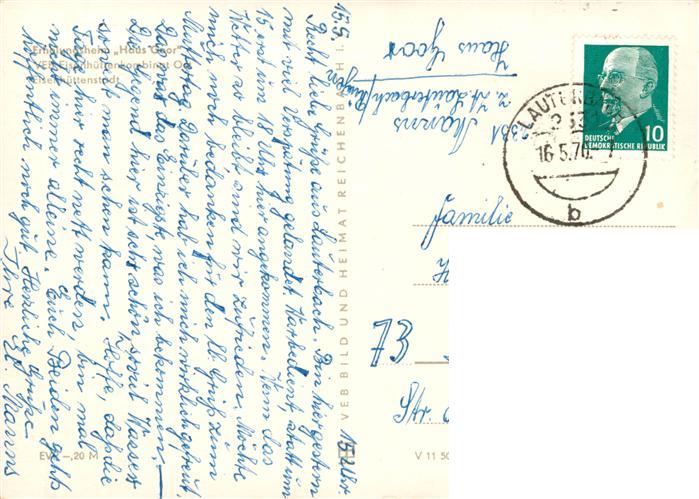 Erholungsheim „Haus Goor"
VEB Eisenhüttenkombinat Ost
Eisenhüttenstadt
15.5.
Recht liebe Grüße aus Lauterbach. Bin hier gestern
mit viel Verspätung gelandet.
15 erst um 18 Uhr hier angekommen. Wenn das
Wetter so bleibt sind wir zufrieden. Möchte
mich noch bedanken für den lb. Gruß zum
Muttertag. Darüber hab ich mich wirklich gefreut.
Es war das Einzigste, was ich bekommen.
Die Gegend hier ist sehr schön, soviel Wasser
man sehen kann. Hoffe, daß die
hier recht nett werden, bin mal
nun immer alleine. Euch Beiden gehts
hoffentlich noch gut. Herzliche Grüße
Ihre
Manns
15 Uhr
VEB BILD UND HEIMAT REICHENBACH I.
EVP -,20 M
V 11 50
2331
Manns
z. Zt. Lauterbach/Rügen
Haus Goor
LAUTERBACH
16.5.70
b
10
DEUTSCHE
DEMOKRATISCHE REPUBLIK
Familie
73
Str